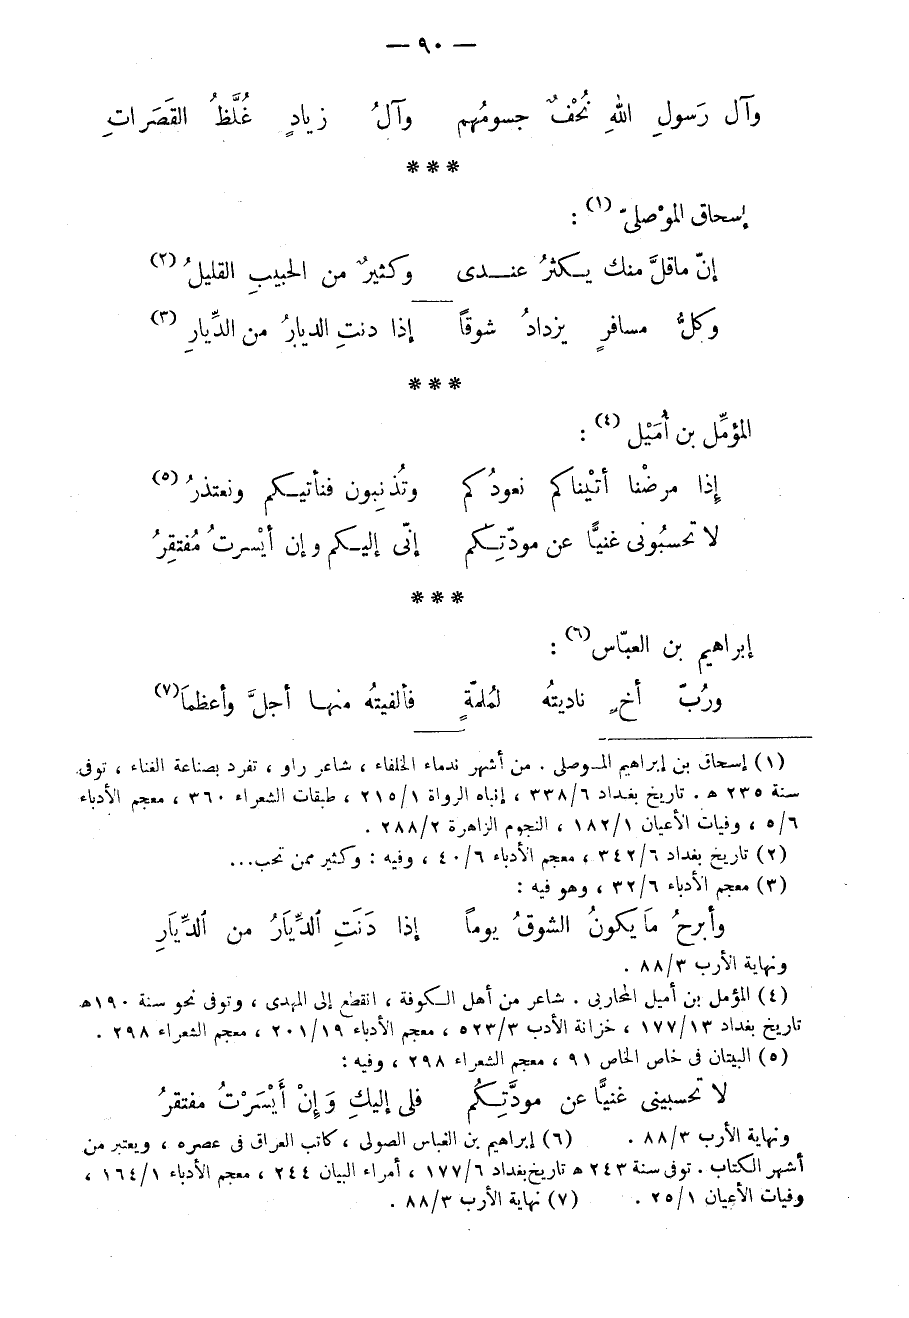 — ٩٠ —
وآل رَسولِ اللهِ نُحْفٌ جسومُهم وآلُ زيادٍ غُلَّظُ القَصَراتِ
* * *
إسحاق الموْصلىّ (١) :
إنّ ماقلَّ منك يكثرُ عندى وكثيرٌ من الحبيبِ القليلُ (٢)
وكلُّ مسافرٍ يزدادُ شوقاً إذا دنتِ الديارُ من الدِّيارِ (٣)
* * *
المؤمِّل بن أُمَيْل (٤) :
إِذا مرضْنا أتيْناكم نعودُكم وتُذنِبون فنأتيكم ونعتذرُ (٥)
لا تحسبُونى غنيًّا عن مودّتِكم إنّى إليكم وإن أيْسرتُ مُفتقِرُ
* * *
إبراهيم بن العبّاس (٦) :
ورُبّ أخٍ ناديتهُ لمُلمّةٍ فألفيتُه منها أجلَّ وأعظمَا (٧)
(١) إسحاق بن إبراهيم الموصلى . من أشهر ندماء الخلفاء ، شاعر راو ، تفرد بصناعة الغناء ، توفى
سنة ٢٣٥ ه . تاريخ بغداد ٣٣٨/٦ ، إنباه الرواة ٢١٥/١ ، طبقات الشعراء ٣٦٠ ، معجم الأدباء
٥/٦ ، وفيات الأعيان ١٨٢/١ ، النجوم الزاهرة ٢٨٨/٢ .
(٢) تاريخ بغداد ٣٤٢/٦ ، معجم الأدباء ٤٠/٦ ، وفيه : وكثير ممن تحب...
(٣) معجم الأدباء ٣٢/٦ ، وهو فيه :
وأبرحُ مَا يكونُ الشوقُ يوماً إذا دَنَتِ الدِّيَارُ من الدِّيَارِ
ونهاية الأرب ٨٨/٣ .
(٤) المؤمل بن أميل المحاربى . شاعر من أهل الكوفة ، انقطع إلى المهدى ، وتوفى نحو سنة ١٩٠ه
تاريخ بغداد ١٧٧/١٣ ، خزانة الأدب ٥٢٣/٣ ، معجم الأدباء ٢٠١/١٩ ، معجم الشعراء ٢٩٨ .
(٥) البيتان فى خاص الخاص ٩١ ، معجم الشعراء ٢٩٨ ، وفيه :
لا تحسبينى غنيًّا عن مودَّتِكُم فلى إليكِ وَإنْ أَيْسَرْتُ مفتقرُ
ونهاية الأرب ٨٨/٣ . (٦) إبراهيم بن العباس الصولى ، كاتب العراق فى عصره ، ويعتبر من
أشهر الكتاب . توفى سنة ٢٤٣ ه تاريخ بغداد ١٧٧/٦ ، أمراء البيان ٢٤٤ ، معجم الأدباء ١٦٤/١ ،
وفيات الأعيان ٢٥/١ . (٧) نهاية الأرب ٨٨/٣ .